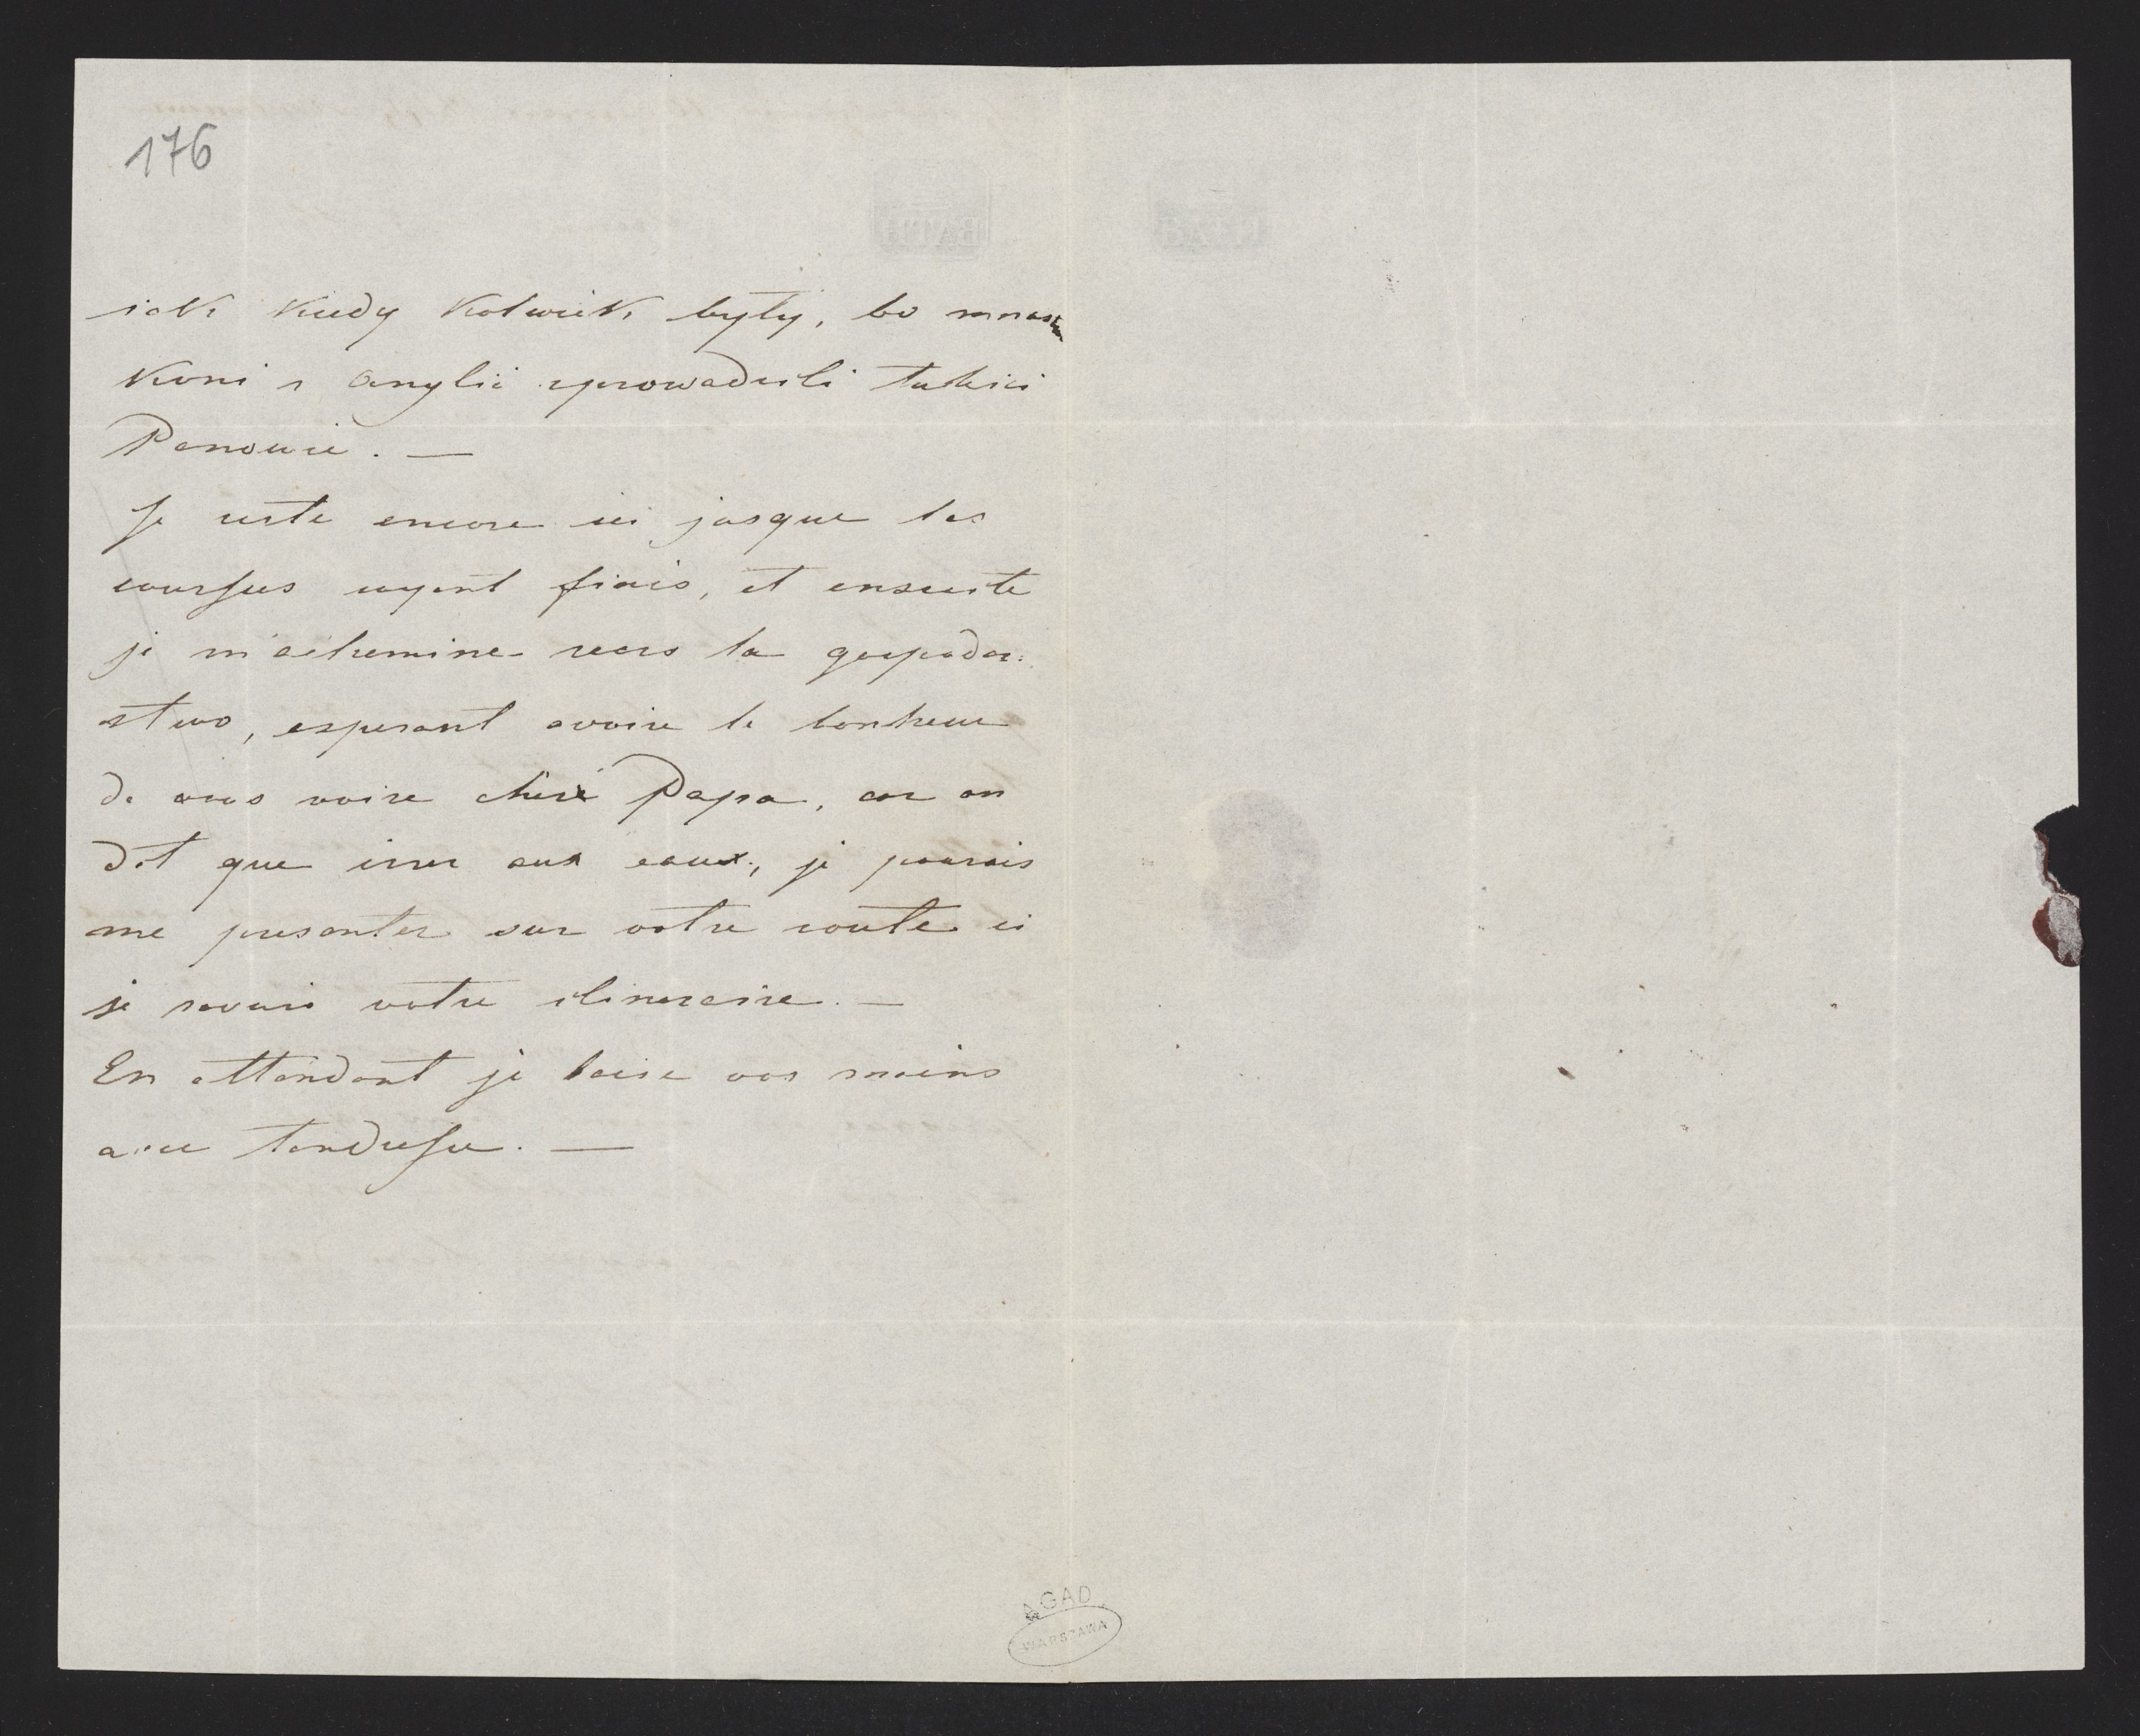 176
BATH
iak kiedy kolwiek byly, bo mnas
koni z Anglii sprowadzili tuteisi
Panowie. —
Je reste encore ici jusque les
courses soyent finis, et ensuite
je m'achemine vers la gospodar:
stwo, esperant avoire le bonheur
de vous voire chere Papa, car on
dit que irer aux eaux, je pourais
me presenter sur votre route si
je savais votre itineraire. —
En attendant je baise vos mains
avec tendresse. —
AGAD
WARSZAWA